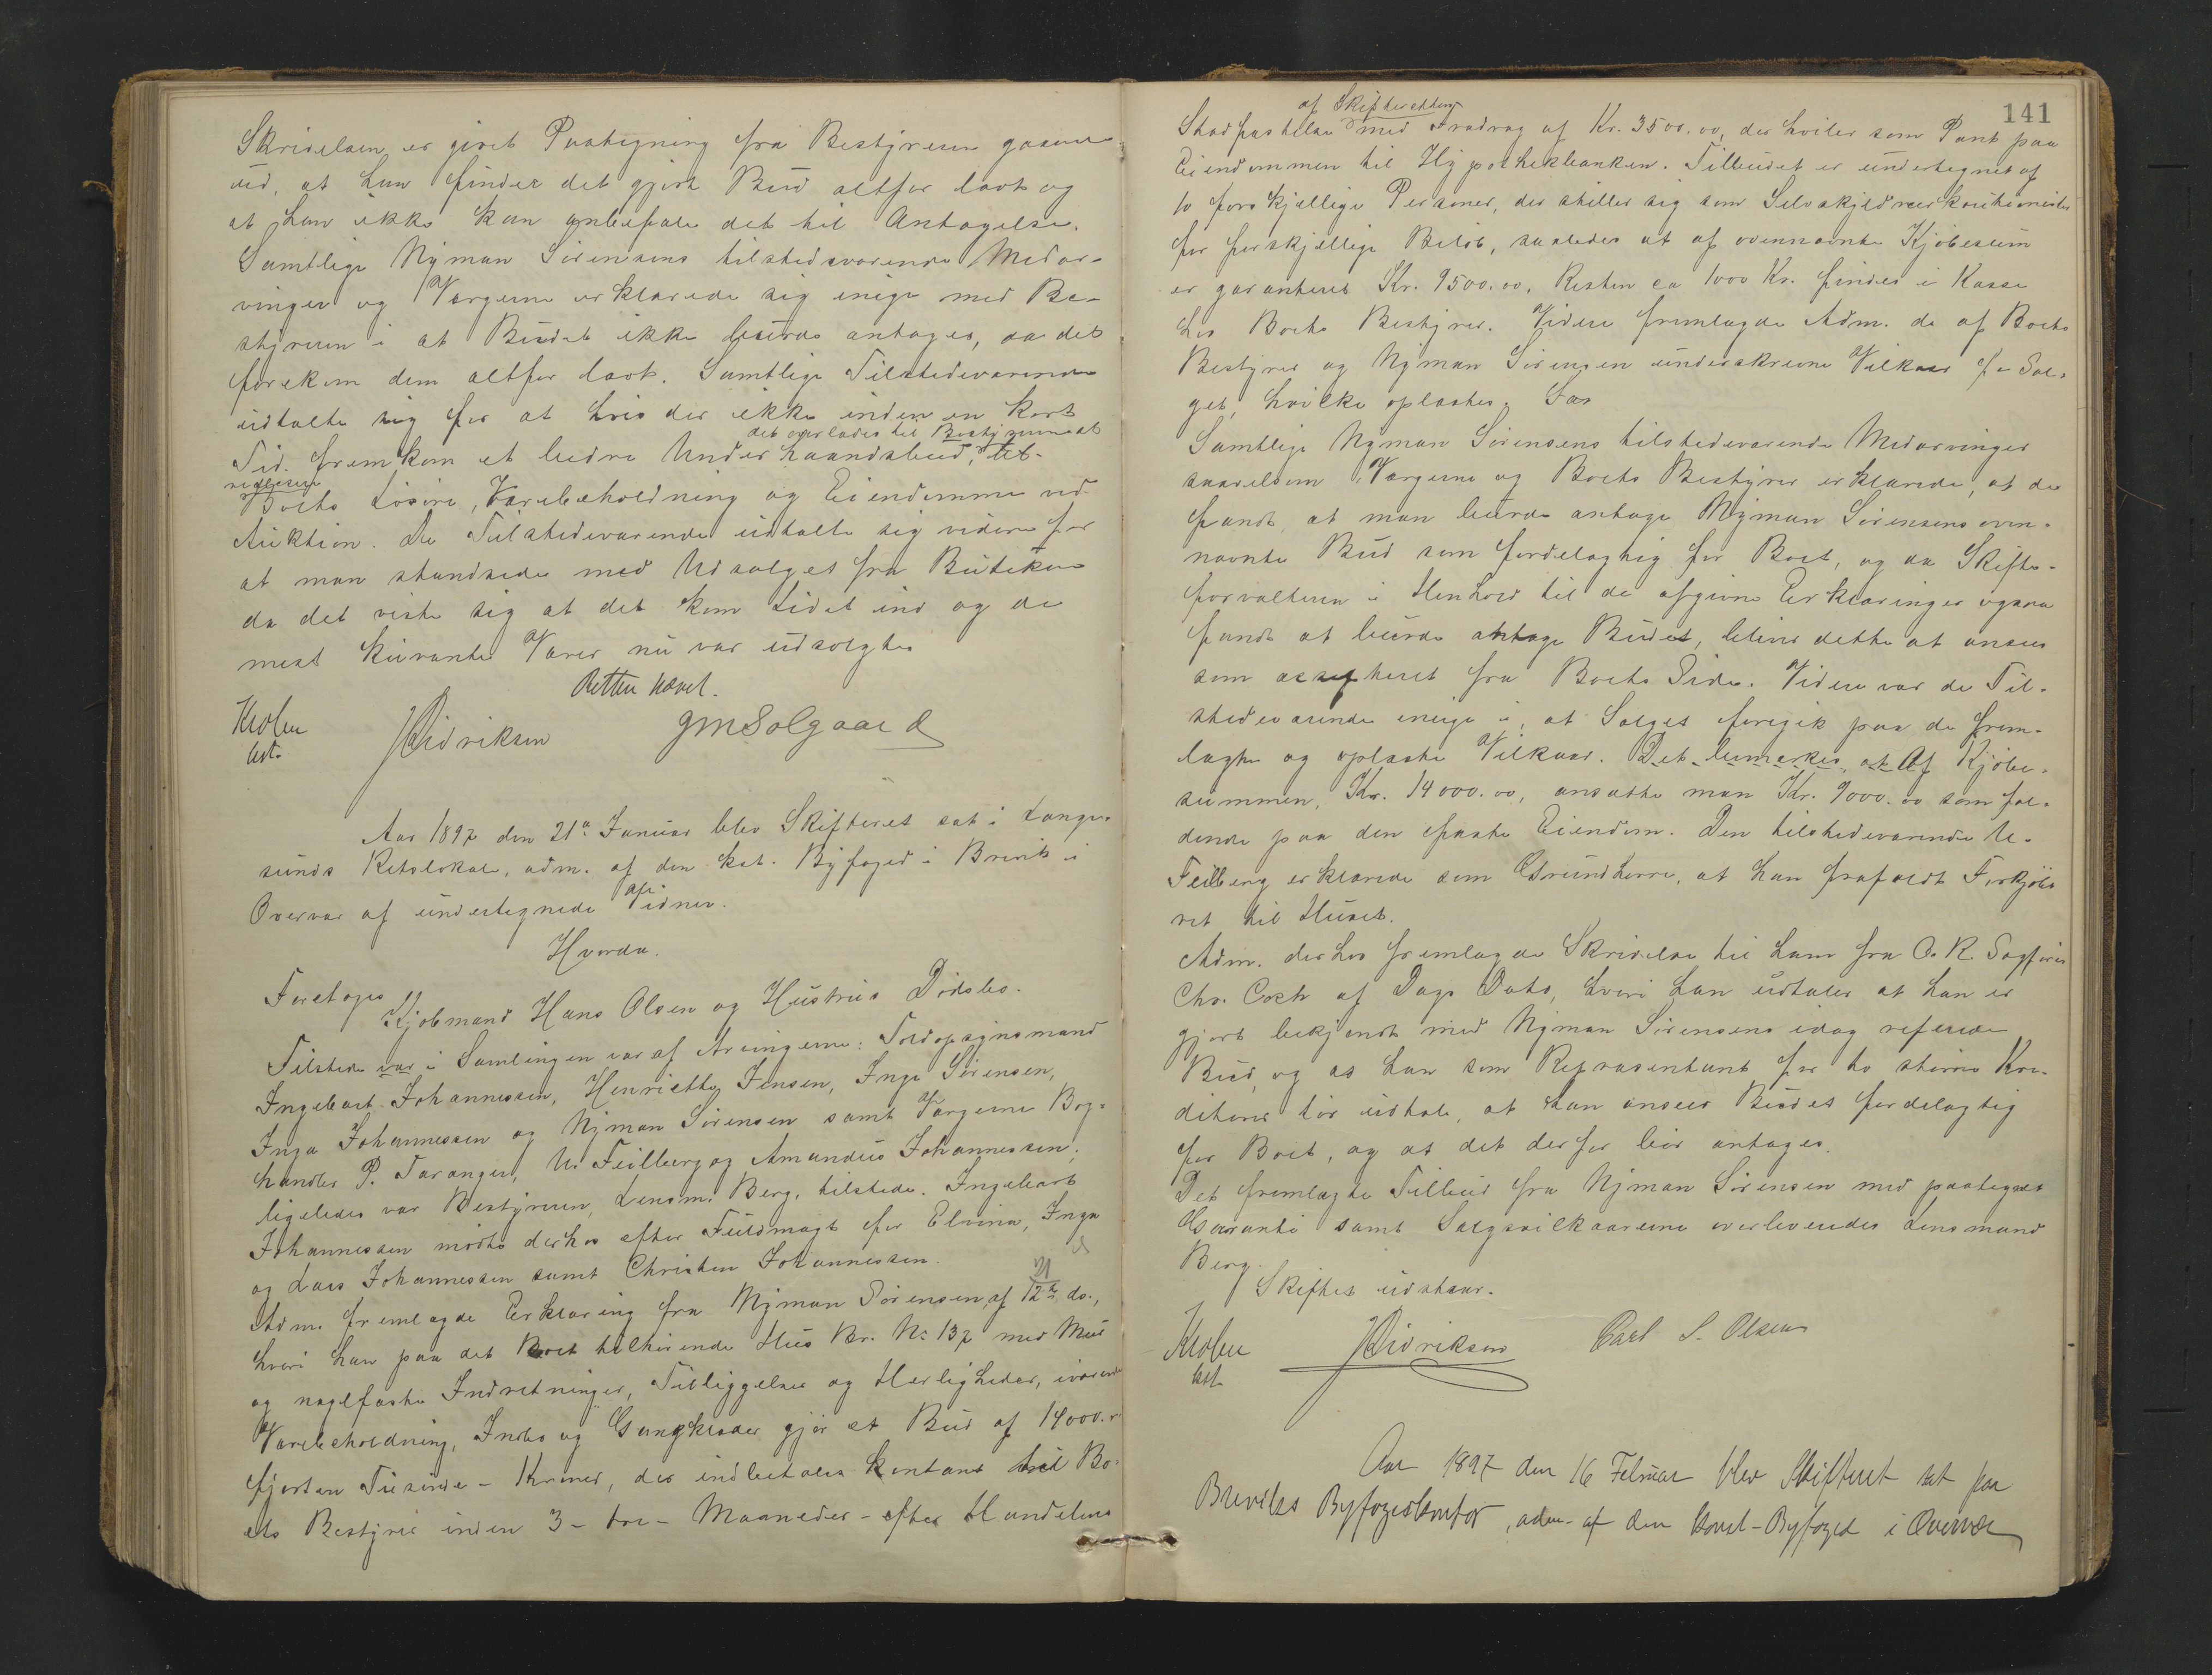 Skrivelsen er givet Paategning fra Bestyreren gaaende
ud, at han finder det gjort Bud altfor lavt og
at han ikke kan anbefale det til Antagelse.
Samtlige Nyman Sørensens tilstedeværende Medar-
vinger og Værgerne erklærede sig enige med Be-
styreren i at Budet ikke burde antages, da det
forekom dem altfor lavt. Samtlige Tilstedeværende
udtalte sig for at hvis der ikke inden en kort
det overlades til Bestyreren at
Tid fremkom et bedre Underhaandsbud,
realisere
Boets Løsøre, Varebeholdning og Eiendomme ved
Auktion. De Tilstedeværende udtalte sig videre for
at man standsede med Udsalget fra Butiken
da det viste sig at det kom lidet ind og de
mest kurante Varer nu var udsolgte
Retten hævet.
Kroken
kst.
HDidriksen
GMSolgaard
Aar 1897 den 21de Januar blev Skifteret sat i Lange-
sunds Retslokale, adm. af den kst. Byfoged i Brevik i
Overvær af undertegnede Vidner.
Hvorda.
Foretoges
Kjøbmand Hans Olsen og Hustrus Dødsbo.
Tilstede var i Samlingen var af Arvingerne: Toldopsynsmand
Ingebart Johannessen, Henriette Jensen, Inge Sørensen,
Inga Johannessen og Nyman Sørensen samt Værgerne Bog-
handler P. Taranger, U. Feilberg og Amandus Johannessen;
ligeledes var Bestyreren, Lensm. Berg, tilstede. Ingebart
Johannessen mødte derhos efter Fuldmagt for Elvina, Inga
og Lars Johannessen samt Christen Johannessen.
21
Adm. fremlagde Erklæring fra Nyman Sørensen, af 12te ds.,
hvori han paa det Boet tilhørende Hus Br. No 137 med Mur
og naglfaste Indretninger, Tilliggelser og Herligheder, iværende
Varebeholdning, Indbo og Gangklæder gjør et Bud af 14000.
fjorten Tusinde - Kroner, der indbetales kontant til Bo-
ets Bestyrer inden 3 - tre - Maaneder - efter Handelens
141
af Skifteretten
Stadfæstelse med Fradrag af Kr. 3500.00, der hviler som Pant paa
Eiendommen til Hypothekbanken. Tilbudet er undertegnet af
10 forskjellige Personer, der stiller sig som Selvskyldnerkautionister
for forskjellige Beløb, saaledes at af ovennævnte Kjøbesum
er garanteret Kr. 9500.00. Resten ca 1000 Kr. findes i Kasse
hos Boets Bestyrer. Videre fremlagde Adm. de af Boets
Bestyrer og Nyman Sørensen underskrevne Vilkaar for Sal-
get, hvilke oplæstes.
Samtlige Nyman Sørensens tilstedeværende Medarvinger
saavelsom Værgerne og Boets Bestyrer erklærede, at de
fandt, at man burde antage Nyman Sørensens oven-
nævnte Bud som fordelagtig for Boet, og da Skifte-
forvalteren i Henhold til de afgivne Erklæringer ogsaa
fandt at burde antage Budet, bliver dette at ansees
som accepteret fra Boets Side. Videre var de Til-
stedeværende enige i, at Salget foregik paa de frem-
lagte og oplæste Vilkaar. Det bemærkes, at Af Kjøbe-
summen, Kr. 14000.00, ansatte man Kr. 9000.00 som fal-
dende paa den faste Eiendom. Den tilstedeværende U.
Feilberg erklærede som Grundherre, at han frafaldt Forkjøbs
ret til Huset.
Adm. derhos fremlagde Skrivelse til ham fra O. R. Sagfører
Chr. Coch af Dags Dato, hvori han udtaler at han er
gjort bekjendt med Nyman Sørensens idag refererede
Bud, og at han som Repræsentant for to større Kre-
ditorer tør udtale, at han ansees Budet fordelagtig
for Boet, og at det derfor bør antages.
Det fremlagte Tilbud fra Nyman Sørensen med paategnet
Garanti samt Salgsvilkaarene overleveredes Lensmand
Berg.
Skiftet udstaar.
Kroken
kst.
HDidriksen
Carl S. Olsen
Aar 1897 den 16 Februar blev Skifteret sat paa
Breviks Byfogedkontor, adm. af den konst. Byfoged i Overvær